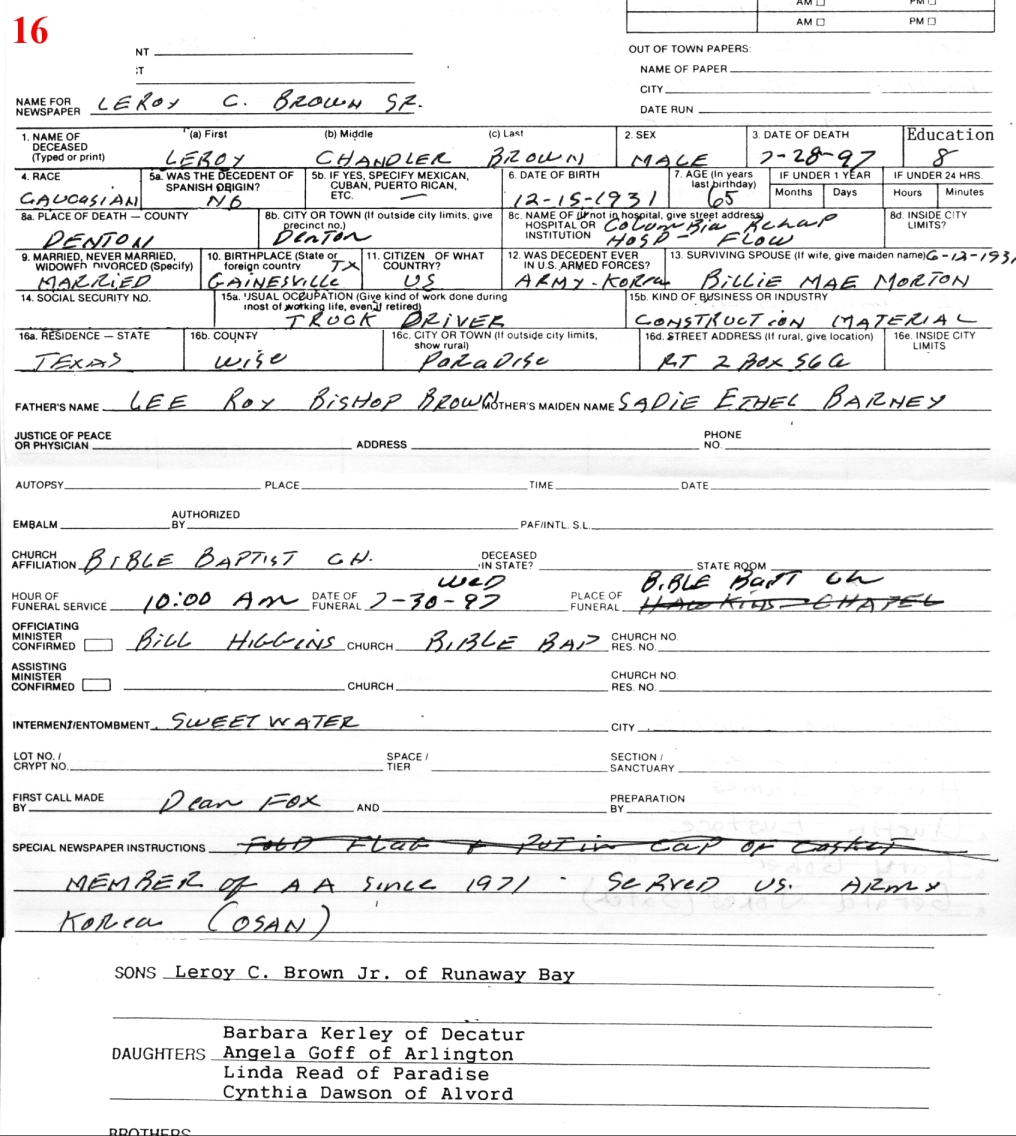 16
AM ☐ PM ☐
AM ☐ PM ☐
NT
OUT OF TOWN PAPERS:
T
NAME OF PAPER
CITY
NAME FOR NEWSPAPER LEROY C. BROWN SR.
DATE RUN
1. NAME OF DECEASED (Typed or print) (a) First (b) Middle (c) Last 2. SEX 3. DATE OF DEATH Education
LEROY CHANDLER BROWN MALE 7-28-97 8
4. RACE 5a. WAS THE DECEDENT OF SPANISH ORIGIN? 5b. IF YES, SPECIFY MEXICAN, CUBAN, PUERTO RICAN, ETC. 6. DATE OF BIRTH 7. AGE (In years last birthday) IF UNDER 1 YEAR Months Days IF UNDER 24 HRS. Hours Minutes
CAUCASIAN NO — 12-15-1931 65
8a. PLACE OF DEATH — COUNTY 8b. CITY OR TOWN (If outside city limits, give precinct no.) 8c. NAME OF (If not in hospital, give street address) HOSPITAL OR INSTITUTION 8d. INSIDE CITY LIMITS?
DENTON Denton Columbia Rehap Hosp - Flow
9. MARRIED, NEVER MARRIED, WIDOWED DIVORCED (Specify) 10. BIRTHPLACE (State or foreign country 11. CITIZEN OF WHAT COUNTRY? 12. WAS DECEDENT EVER IN U.S. ARMED FORCES? 13. SURVIVING SPOUSE (If wife, give maiden name) 6-12-193
MARRIED GAINESVILLE TX US ARMY-KOREA BILLIE MAE MORTON
14. SOCIAL SECURITY NO. 15a. USUAL OCCUPATION (Give kind of work done during most of working life, even if retired) 15b. KIND OF BUSINESS OR INDUSTRY
TRUCK DRIVER CONSTRUCTION MATERIAL
16a. RESIDENCE — STATE 16b. COUNTY 16c. CITY OR TOWN (If outside city limits, show rural) 16d. STREET ADDRESS (If rural, give location) 16e. INSIDE CITY LIMITS
TEXAS Wise Paradise RT 2 Box
FATHER'S NAME LEE ROY BISHOP BROWN MOTHER'S MAIDEN NAME SADIE ETHEL BARNEY
JUSTICE OF PEACE OR PHYSICIAN ADDRESS PHONE NO.
AUTOPSY PLACE TIME DATE
EMBALM AUTHORIZED BY PAF/INTL. S.L.
CHURCH AFFILIATION BIBLE BAPTIST CH. DECEASED IN STATE? STATE ROOM
WED BIBLE BAPT CH
HOUR OF FUNERAL SERVICE 10:00 AM DATE OF FUNERAL 7-30-97 PLACE OF FUNERAL HAWKINS CHAPEL
OFFICIATING MINISTER CONFIRMED BILL HIGGINS CHURCH BIBLE BAP CHURCH NO. RES. NO.
ASSISTING MINISTER CONFIRMED CHURCH CHURCH NO. RES. NO.
INTERMENT/ENTOMBMENT SWEETWATER CITY
LOT NO. / CRYPT NO. SPACE / TIER SECTION / SANCTUARY
FIRST CALL MADE BY Dean Fox AND PREPARATION BY
SPECIAL NEWSPAPER INSTRUCTIONS FOLD FLAG & PUT IN CAP OF CASKET
MEMBER of AA since 1971 - SERVED US. ARMY
KOREA (OSAN)
SONS Leroy C. Brown Jr. of Runaway Bay
Barbara Kerley of Decatur
DAUGHTERS Angela Goff of Arlington
Linda Read of Paradise
Cynthia Dawson of Alvord
BROTHERS